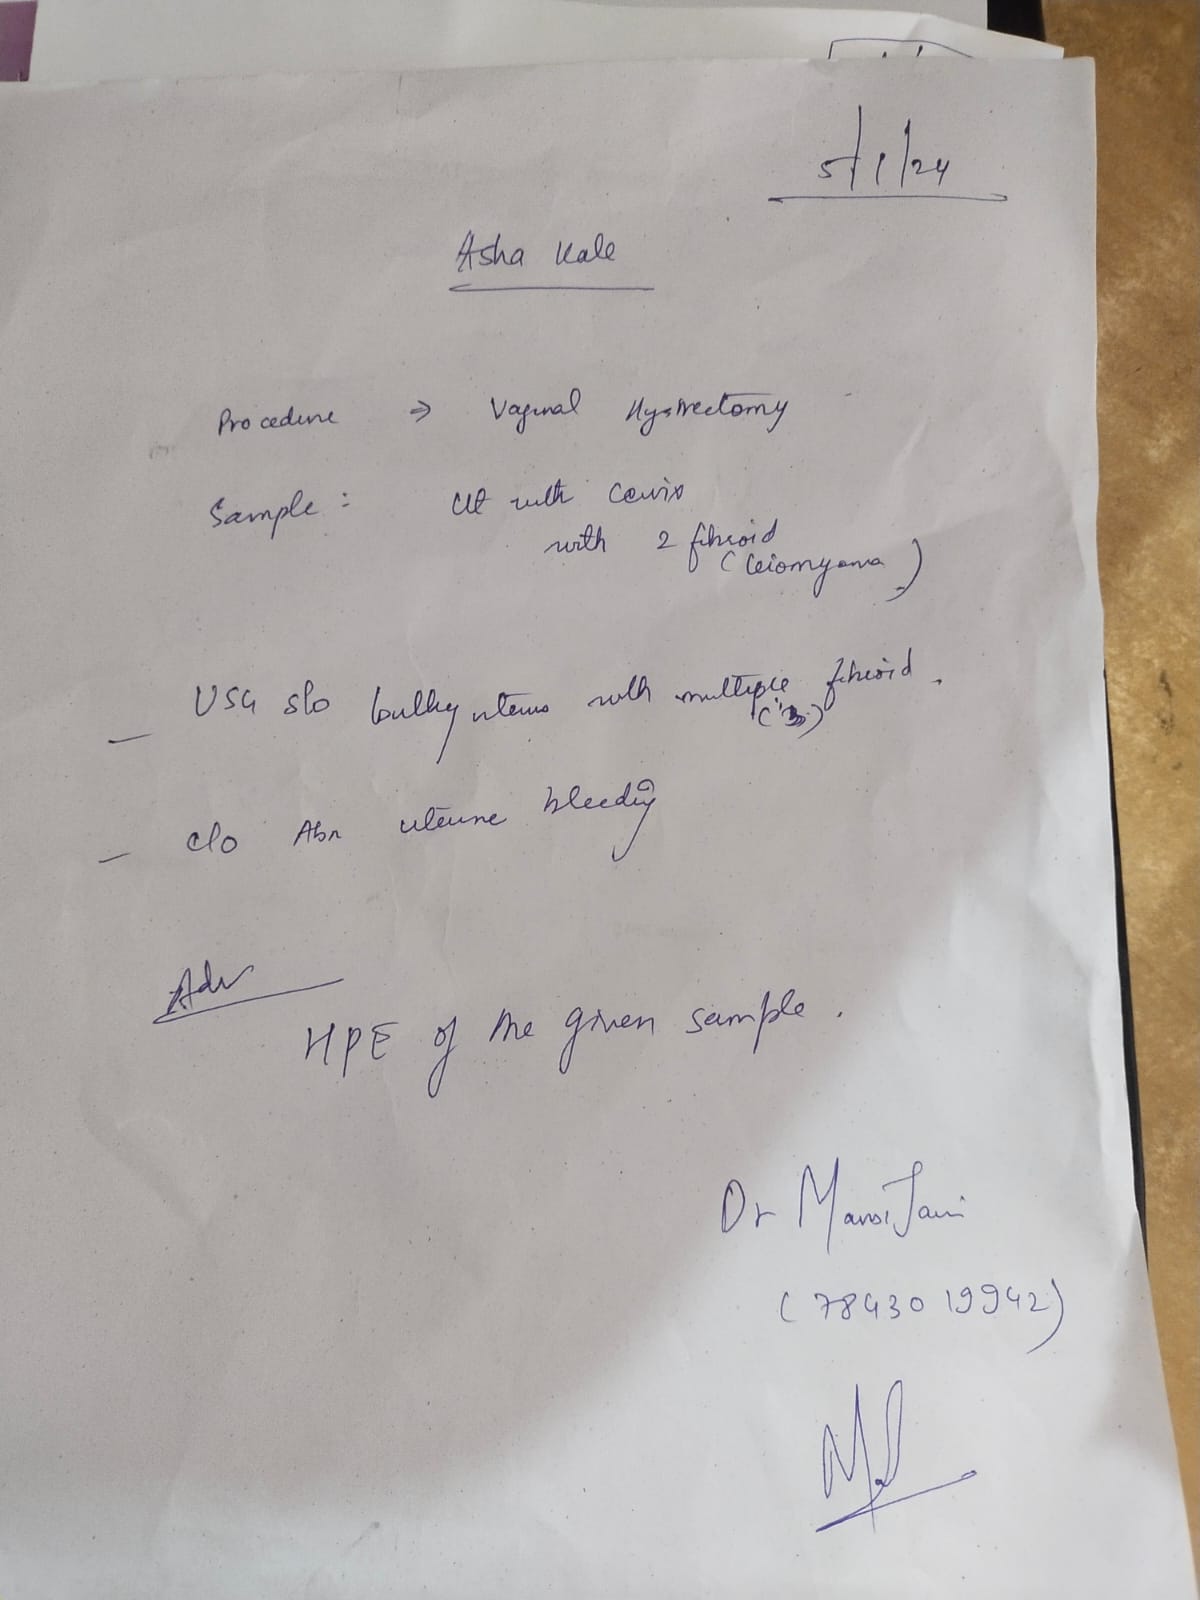 5/1/24
Asha Kale
Procedure ⇒ Vaginal Hystrectomy
Sample : Ut with Cervix
with 2 fibroid
(leiomyoma)
- USG s/o bulky uterus with multiple fibroid.
- c/o Abn uterine bleeding
Adv
HPE of the given sample.
Dr Mansi Jain
(7843019942)